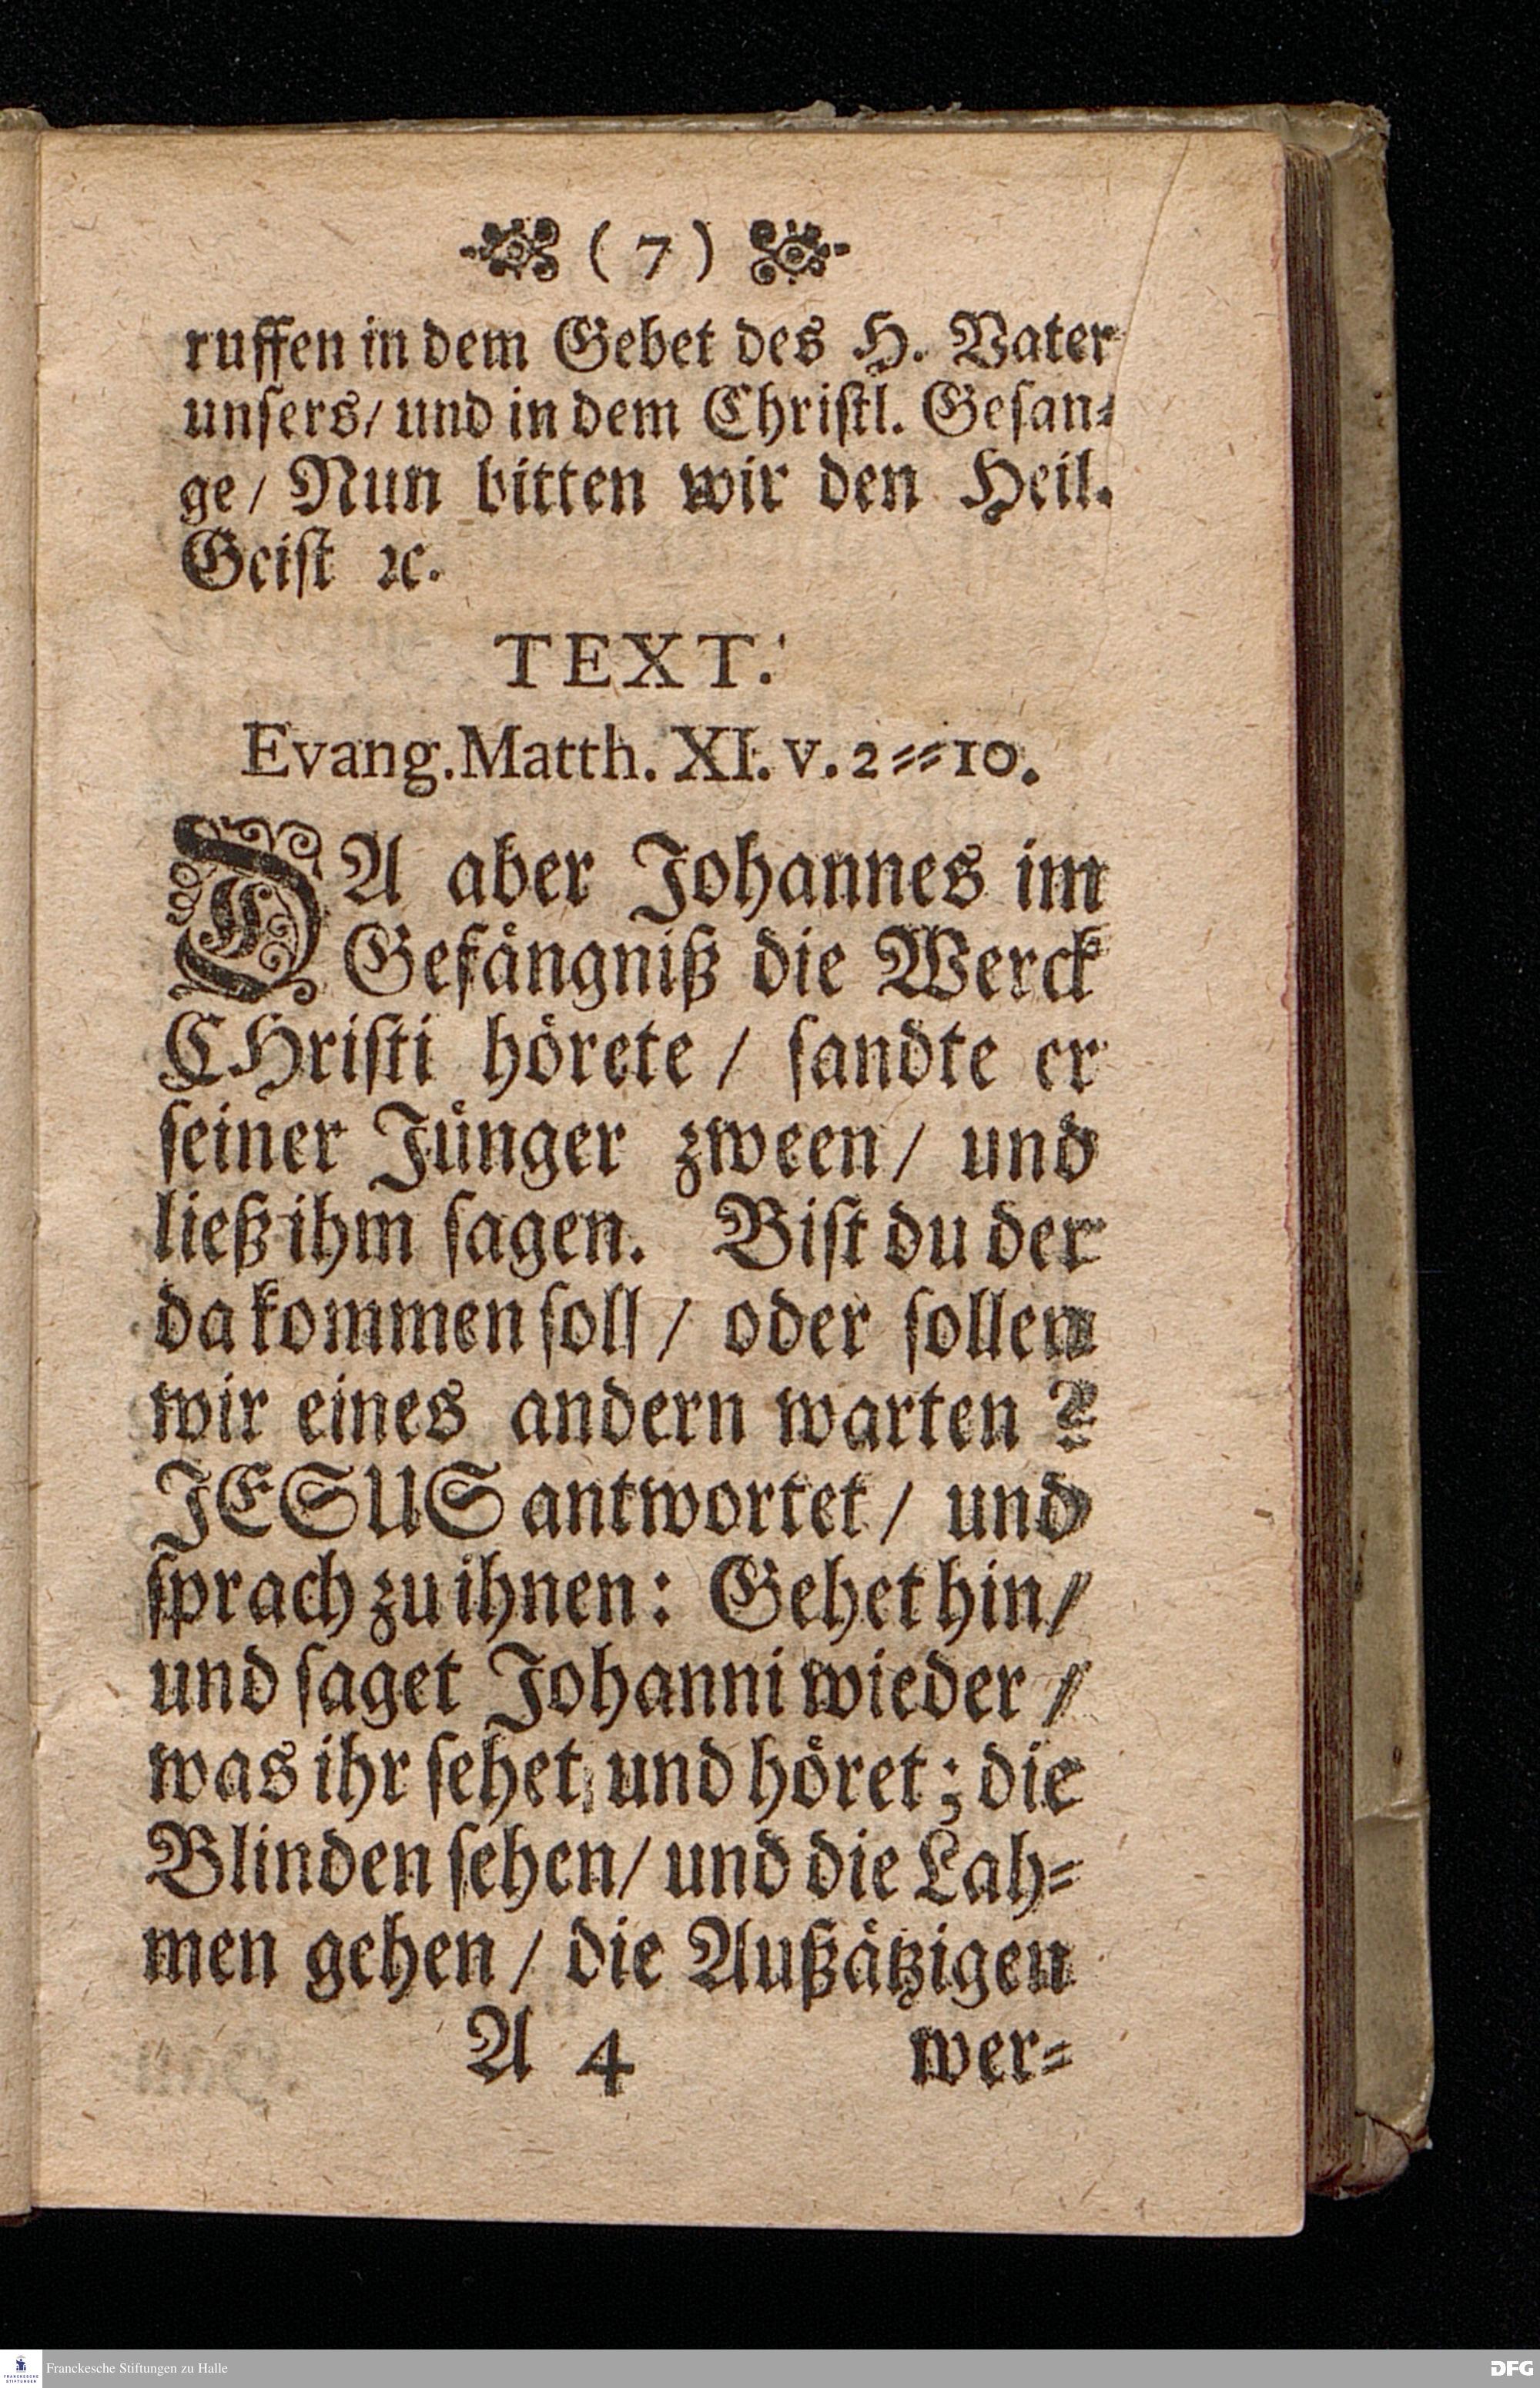 ( 7 )
ruffen in dem Gebet des H. Vater
unſers/ und in dem Chriſtl. Geſan⸗
ge/ Nun bitten wir den Heil.
Geiſt ꝛc.
TEXT.
Evang. Matth. XI. v. 2⸗⸗10.
DA aber Johannes im
Gefaͤngniß die Werck
CHriſti hoͤrete / ſandte er
ſeiner Juͤnger zween/ und
ließ ihm ſagen. Biſt du der
da kommen ſoll / oder ſollen
wir eines andern warten ?
JESUS antwortet/ und
ſprach zu ihnen: Gehet hin/
und ſaget Johanni wieder /
was ihr ſehet, und hoͤret; die
Blinden ſehen/ und die Lah⸗
men gehen / die Außaͤtzigen
A 4 wer⸗
FRANCKESCHE STIFTUNGEN
Franckesche Stiftungen zu Halle
DFG